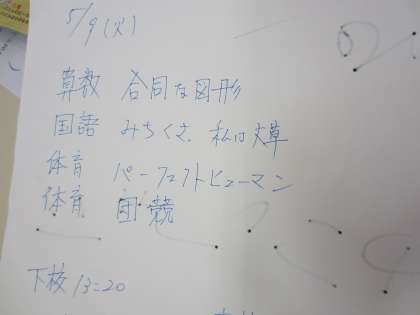 5/9(火)
算数 合同な図形
国語 みちくさ、私は
体育 パーフェクトヒューマン
体育 団競
下校 13:20